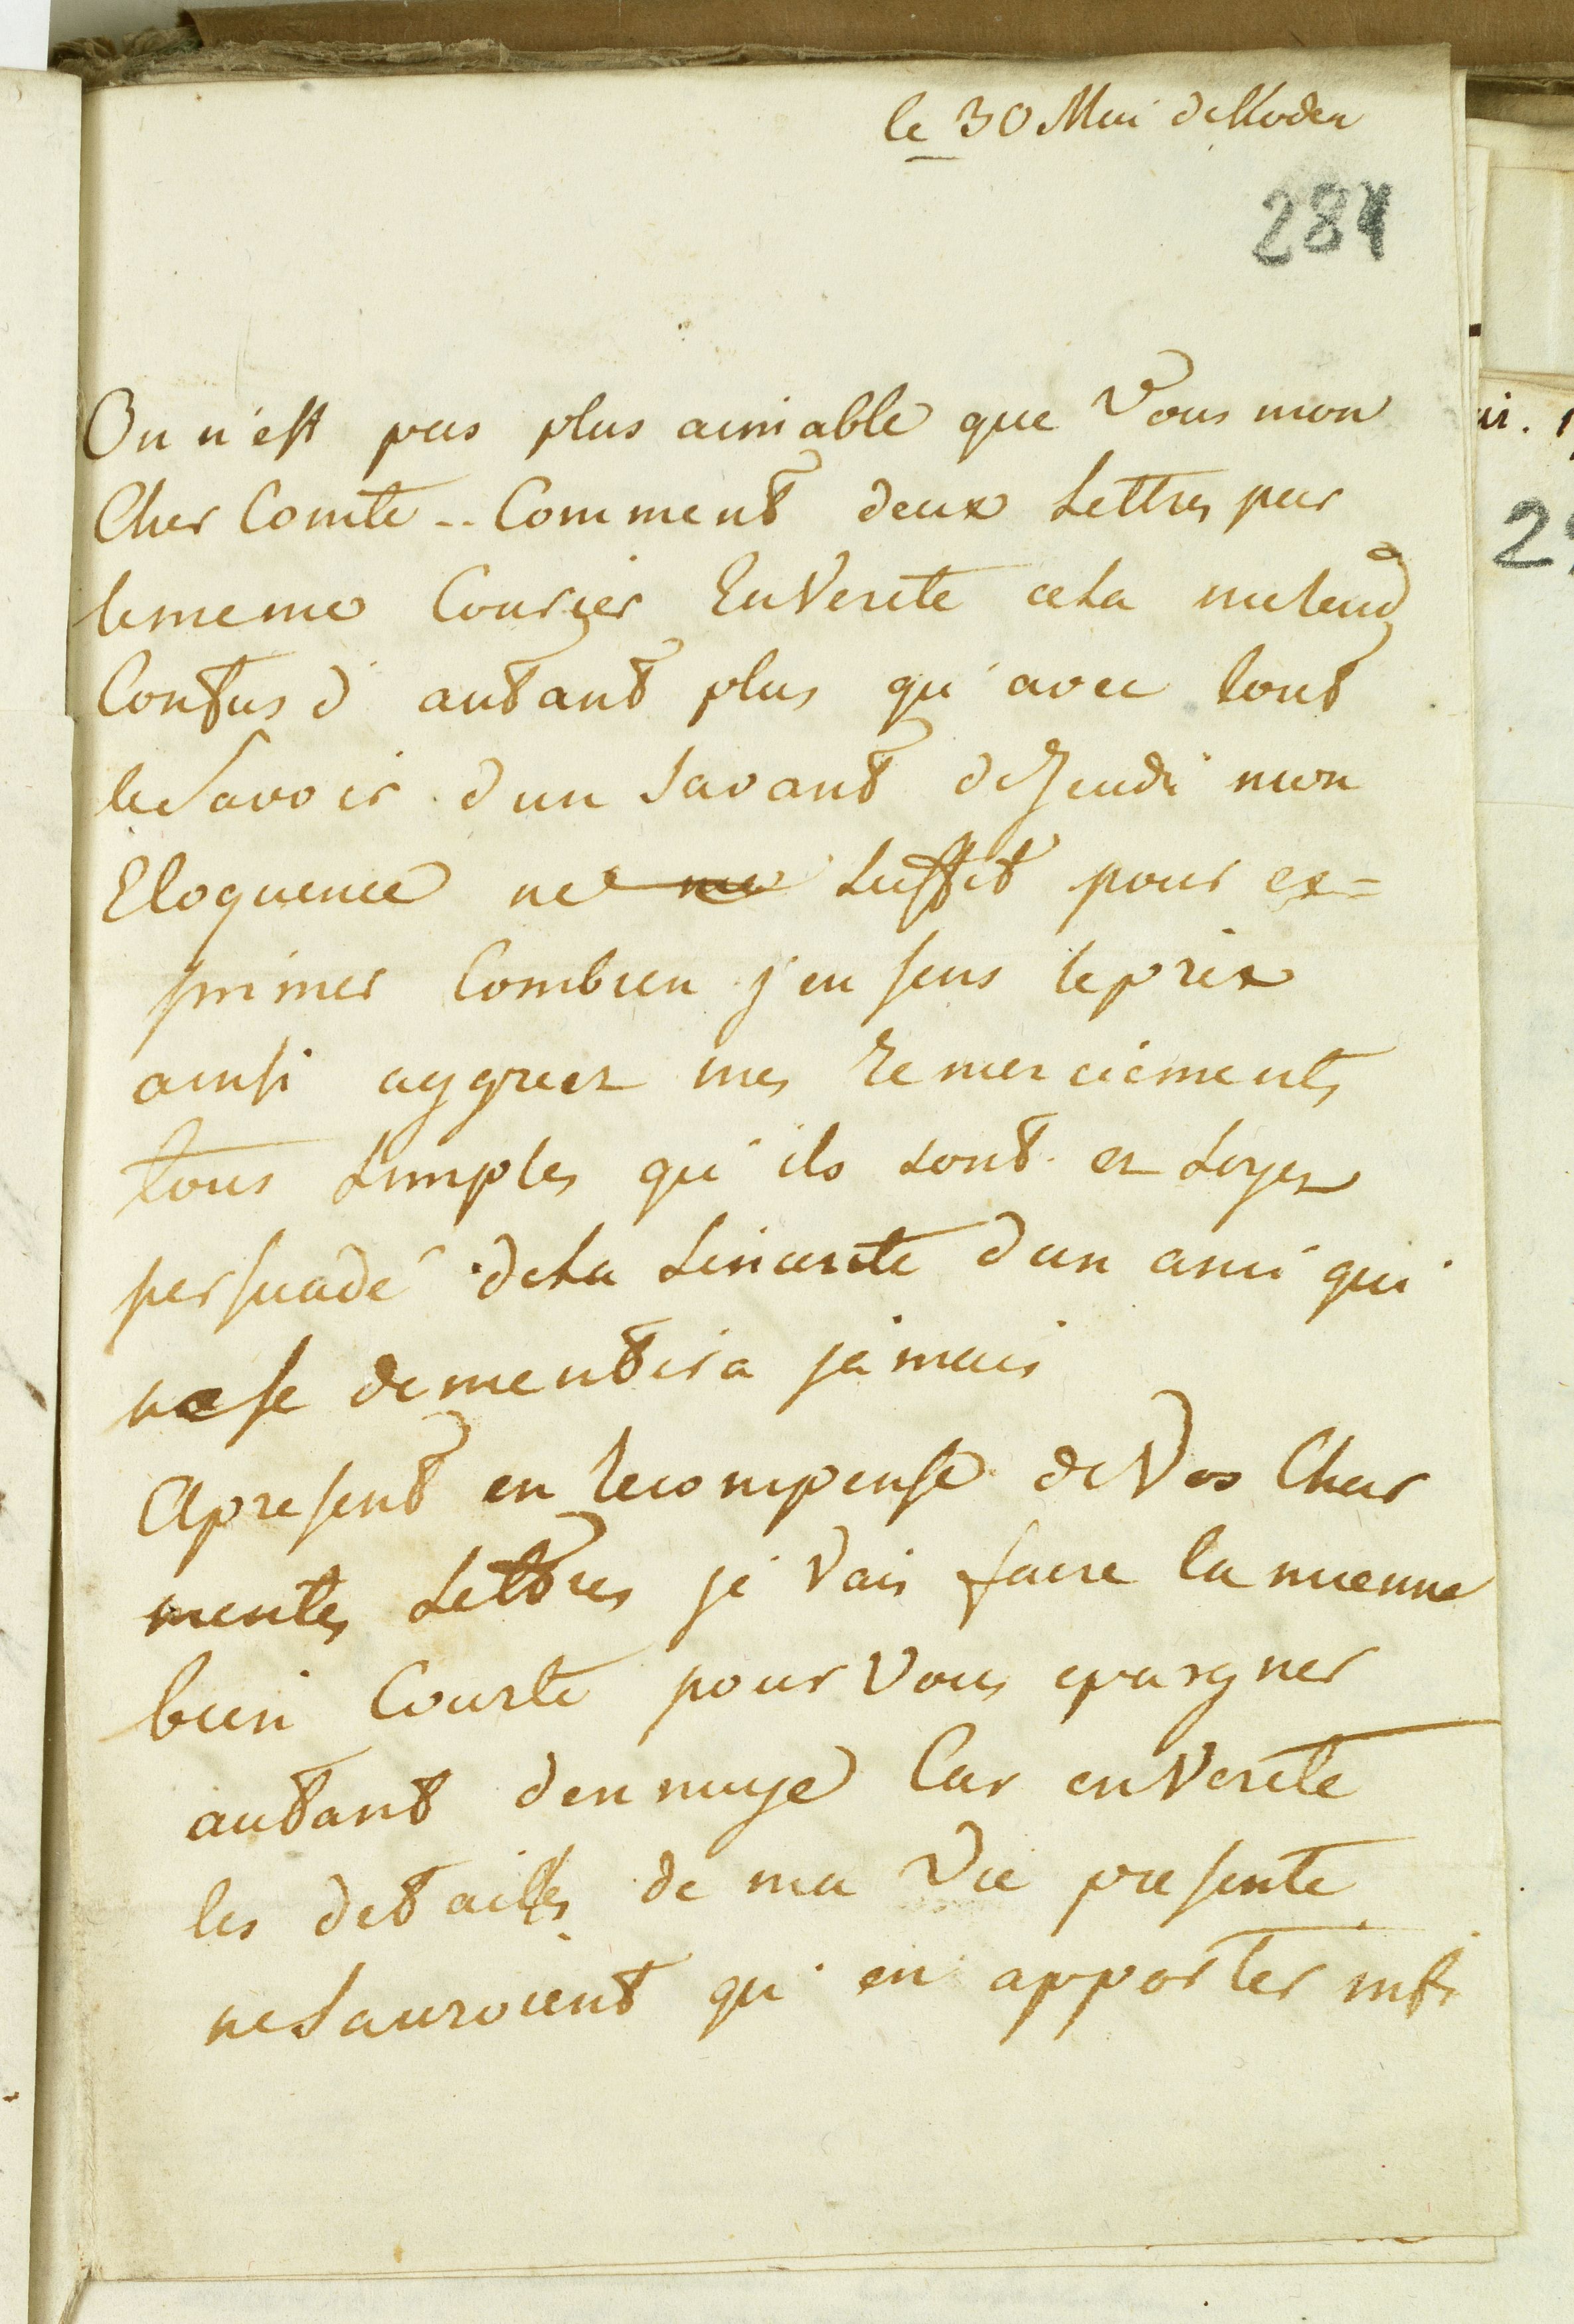 le 30 Mai de Koden
284
On n'est pas plus aimable que Vous mon
Cher Comte -- Comment deux Lettres par
lememe Courier En Verite cela me rend
Confus d'autant plus qu'avec tout
le Savoir d'un Savant de Jeudi mon
Eloquence ne me Suffit pour ex=
primer Combien j'en sens le prix
ainsi aggreez mes remerciements
tous Simples qu'ils sont et Soyez
persuadé dela Sincerité d'un ami qui
ne se dementira jamais
Apresent en recompense de Vos Char
mentes Lettres je vais faire la mienne
bien Courte pour Vous epargner
autant d'ennuye Car en Verité
les detailles de ma Vie presente
ne Sauroient qu'en apporter infi